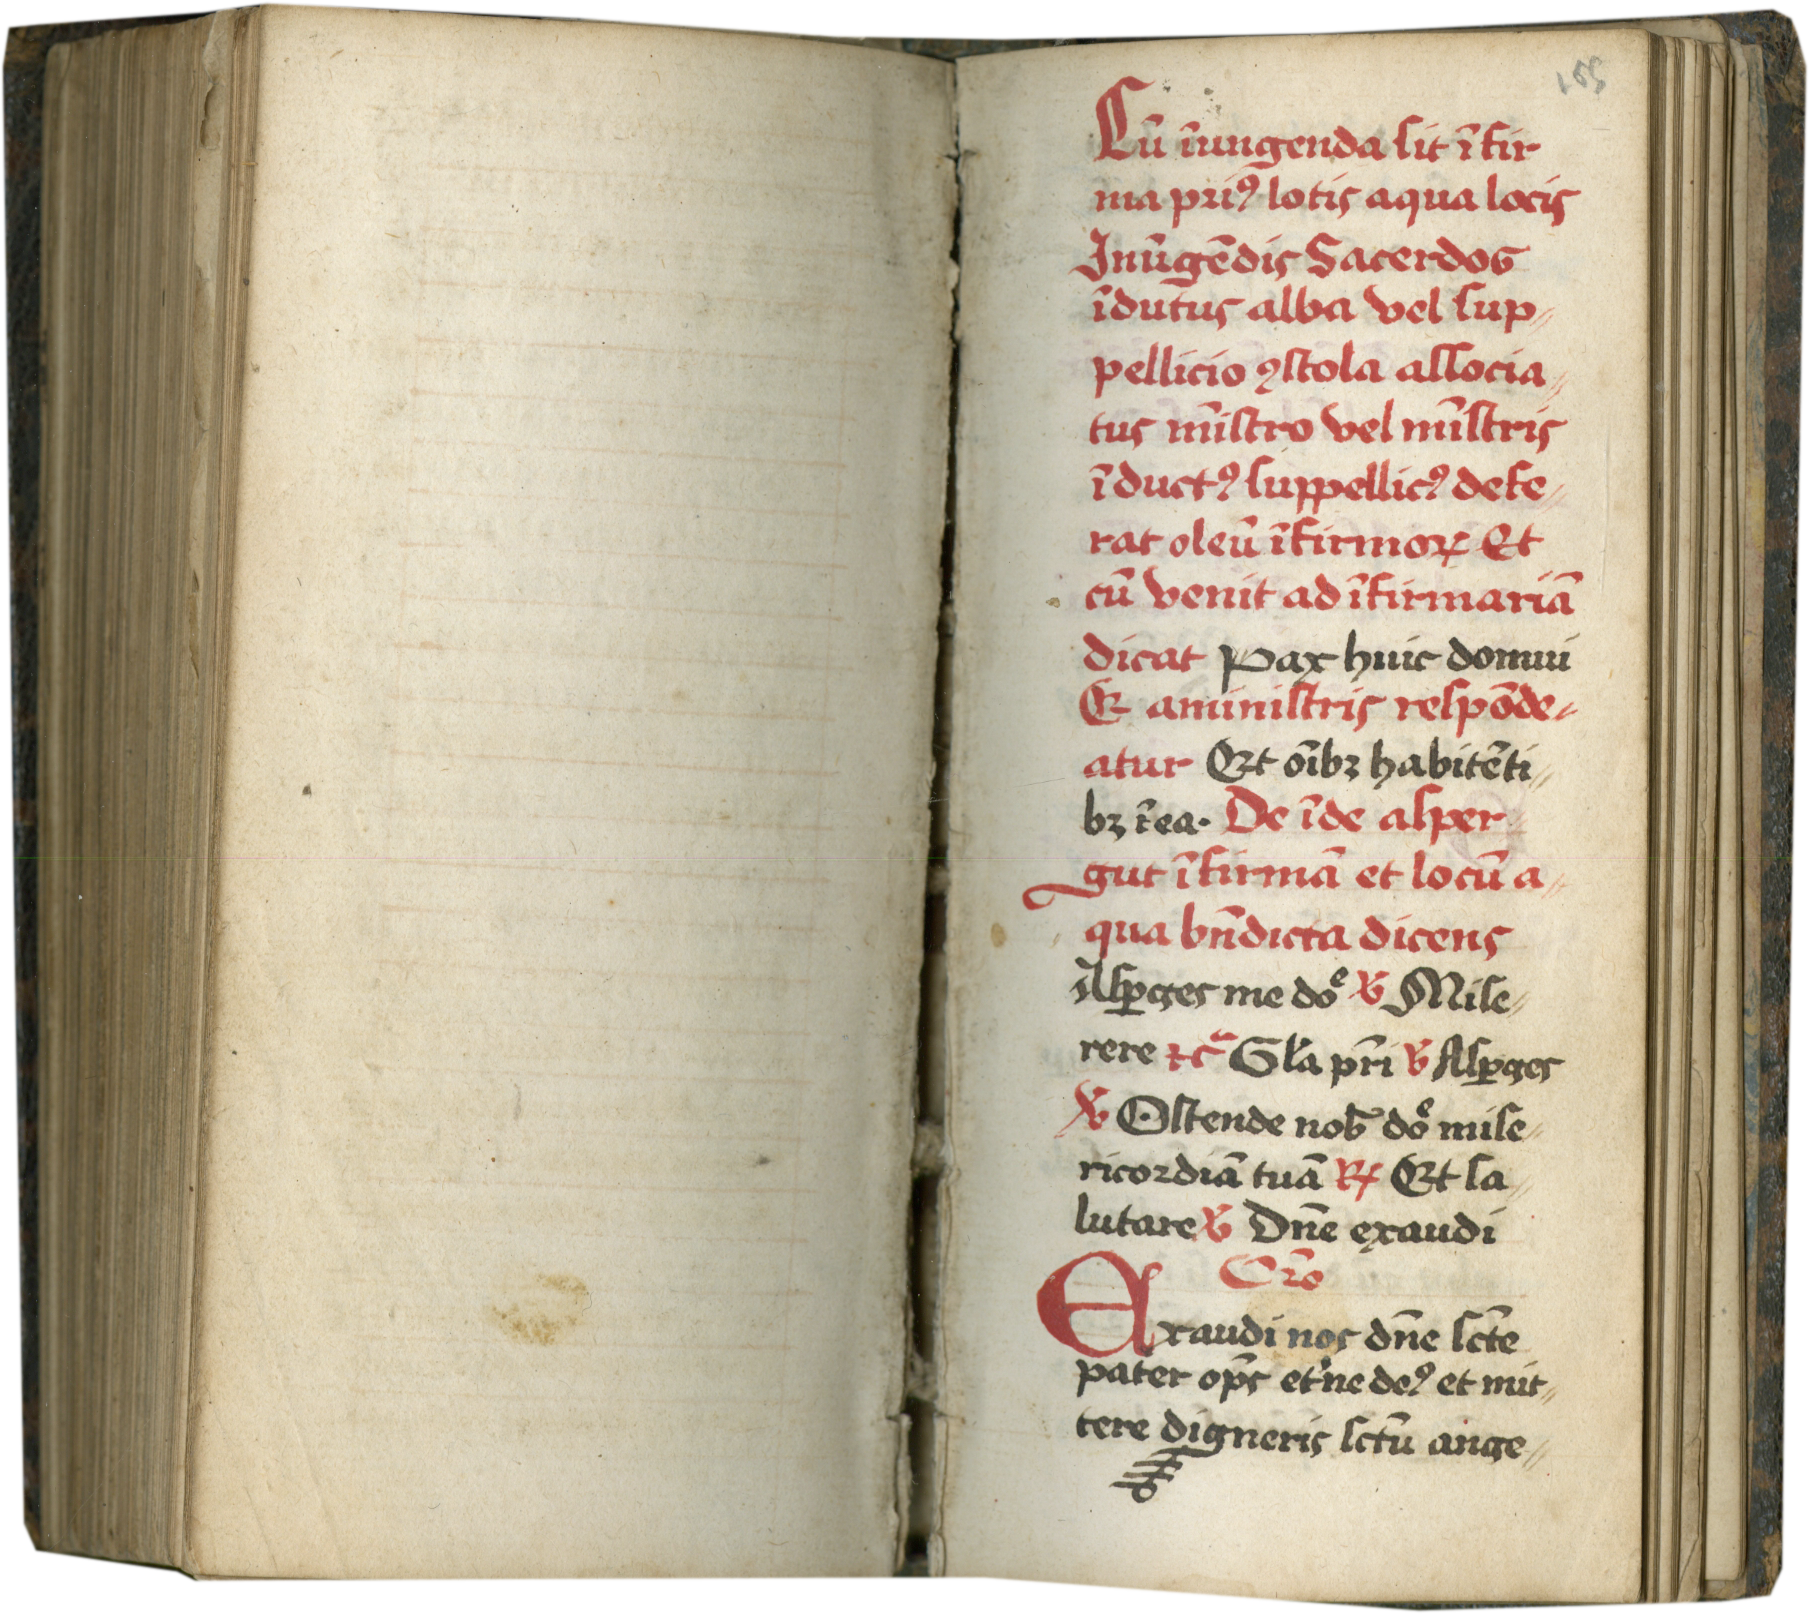 155
Cū īungenda sit īfir
ma priꝰ lotis aqua locis
Inūgēdis Sacerdos
īdutus alba vel sup⸗
pellicio ꝯstola associa⸗
tus mīstro vel mīstris
īductꝰ suppellicꝰ defe⸗
rat oleū īfirmoꝝ Et
cū venit ad īfirmariā
dicat Pax huic domui
Et aministris respōde⸗
atur Et oībꝫ habitēti⸗
bꝫ ī ea. De īde asper
gat īfirmā et locū a⸗
qua bn̄dicta dicens
Asꝑges me doͤ ℣ Mise⸗
rere ⁊cͣ Gła pr̄i ℣ Asꝑges
℣ Ostende nob̄ doͤ mise⸗
ricordiā tuā ℟ Et sa⸗
lutare ℣ Dn̄e exaudi
Or̄o
Exaudi nos dn̄e sct̄e
pater op̄s et'ne deꝰ et mit⸗
tere digneris sct̄ū ange⸗